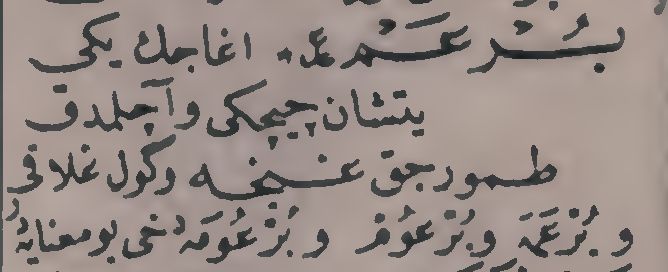 بُرْعُم ع اغاجك یکی
یتشان چیچکی وآچلمدق
طمورجق غنچه وکول غلافی
و بُرْعُمَة و بُرْعُوم و بُرْعُومَة دخی بو معنایه